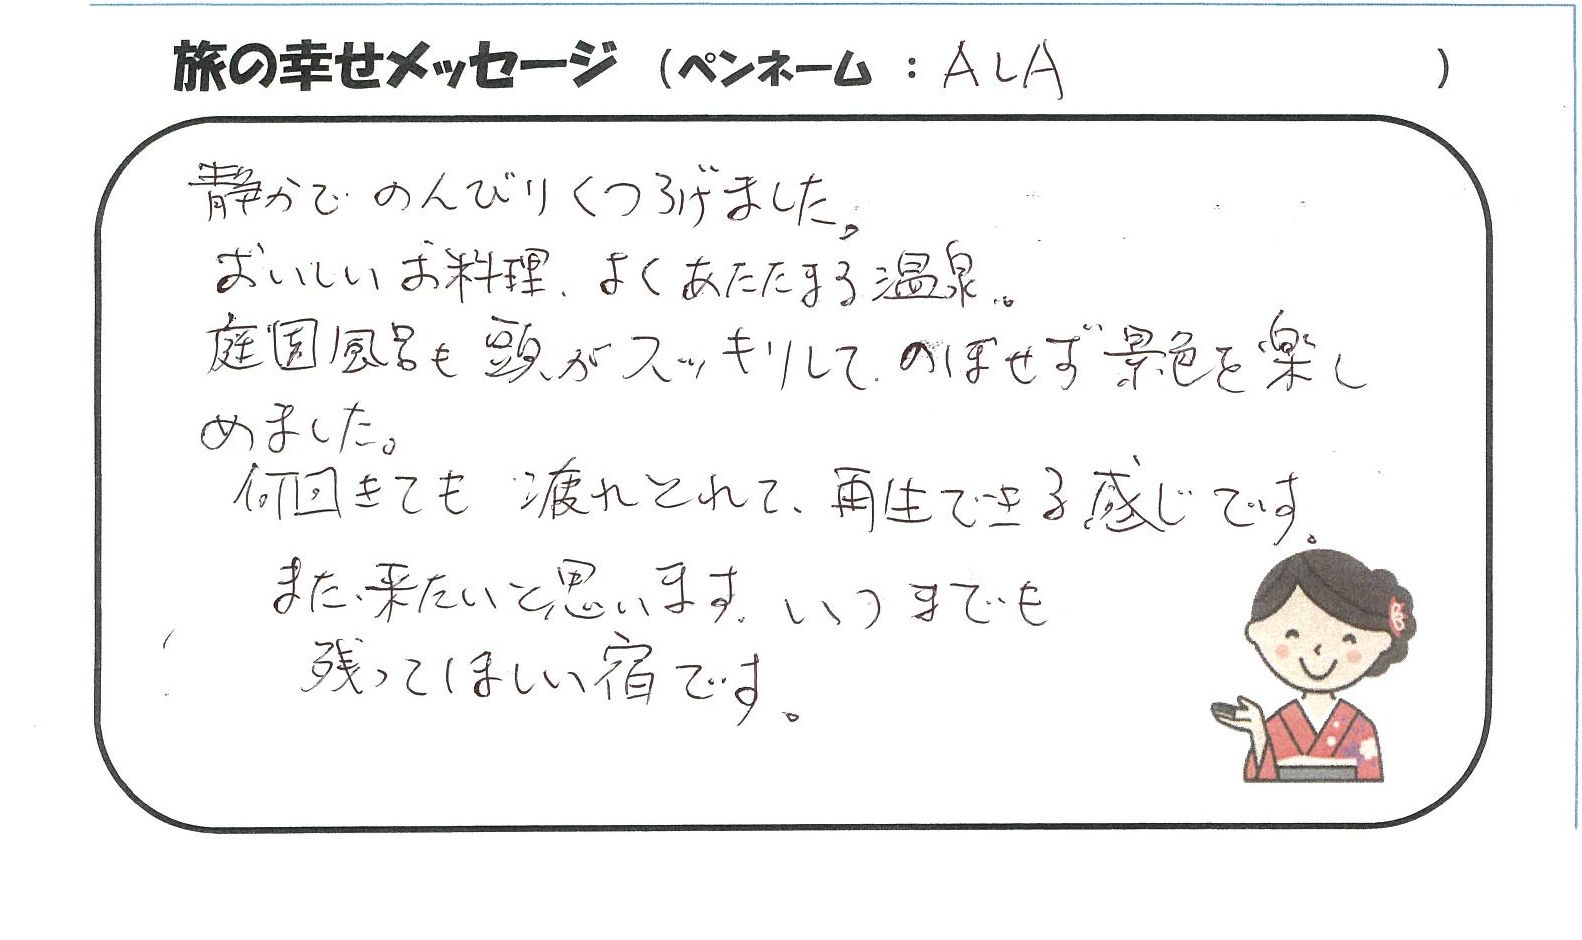 旅の幸せメッセージ (ペンネーム : ALA )
静かで のんびりくつろげました。
おいしいお料理、よくあたたまる温泉。
庭園風呂も頭がスッキリして、のぼせず景色を楽し
めました。
何回きても 疲れとれて、再生できる感じです。
また、来たいと思います。いつまでも
残ってほしい宿です。